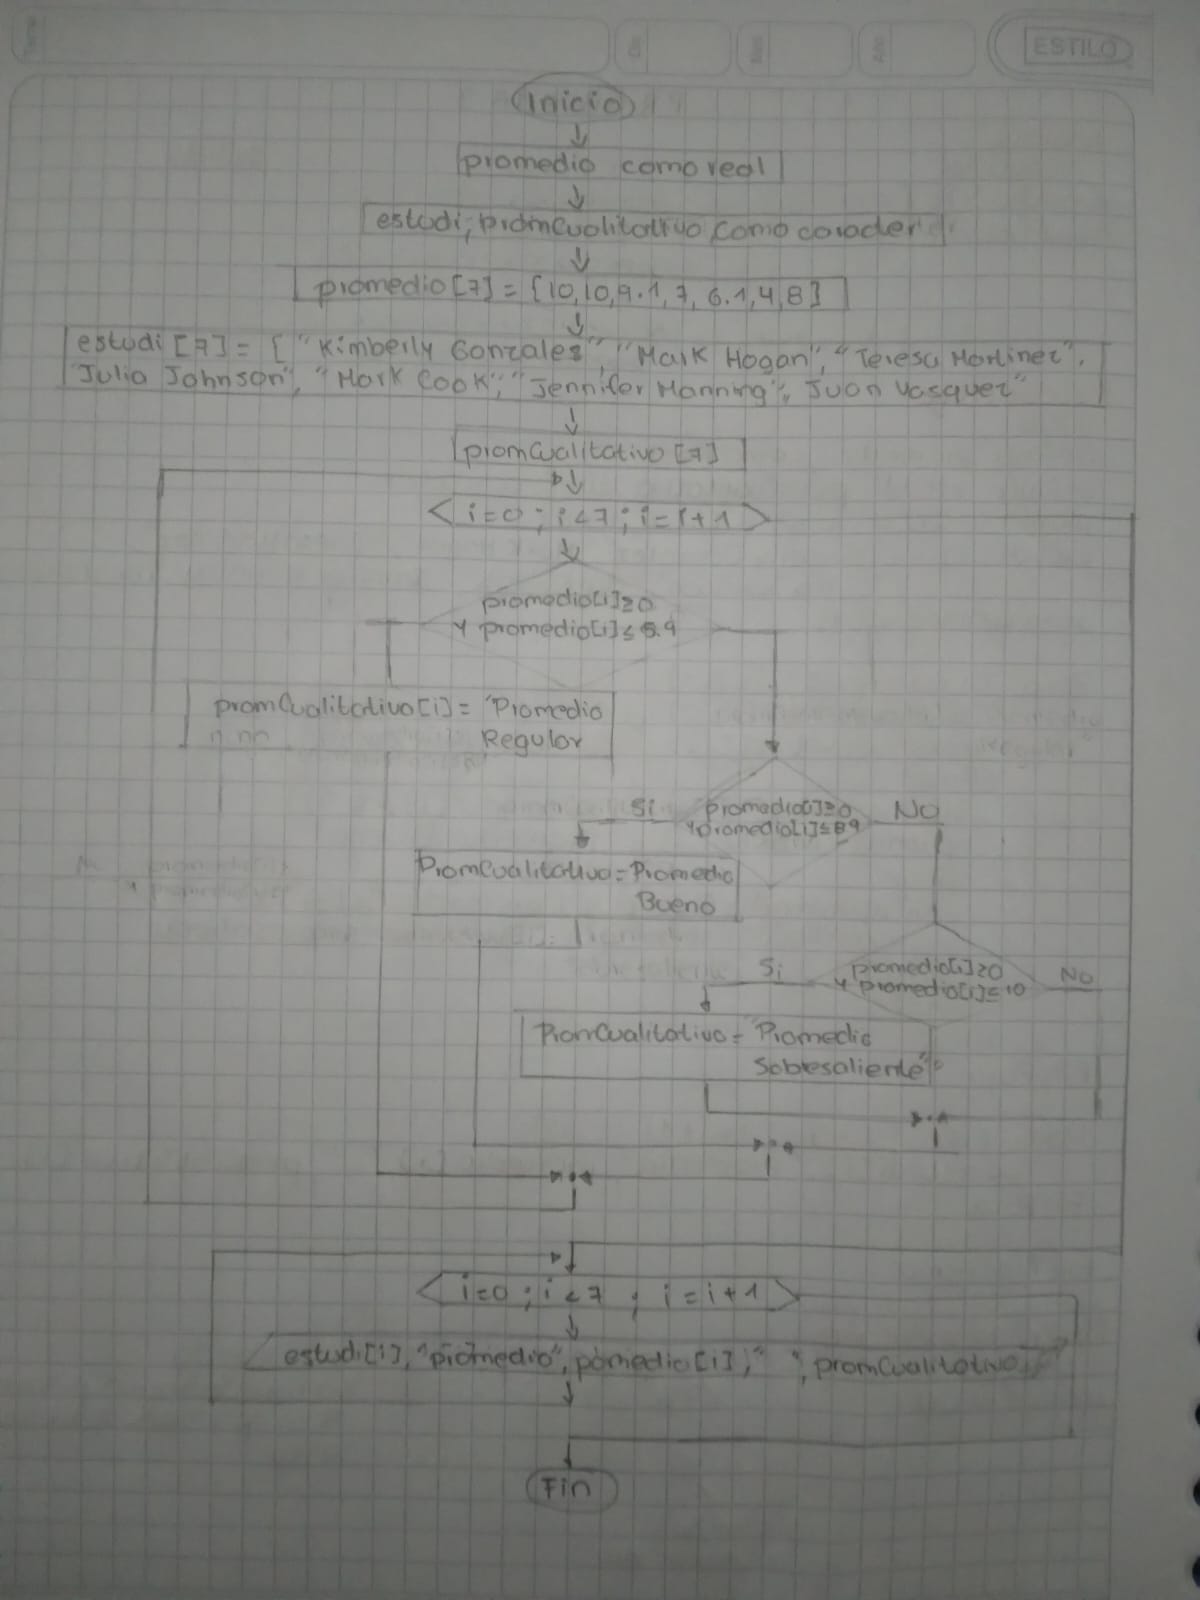 ESTILO
Inicio
promedio como real
estudi, promCualitativo como caracter
promedio [7] = {10,10,9.1,7, 6.1,4,8}
estudi [7] = { "Kimberly Gonzales", "Mark Hogan", "Teresa Martinez",
"Julia Johnson", "Mark Cook", "Jennifer Manning", Juan Vasquez"
promCualitativo [7]
i=0 ; i<7 ; i=i+1
promedio[i]≥0
y promedio[i]≤5.9
promCualitativo[i] = "Promedio
Regular
promedio[i]≥0
y promedio[i]≤8.9
Si
NO
PromCualitativo = Promedio
Bueno
promedio[i]≥0
y promedio[i]≤10
Si
NO
PromCualitativo = "Promedio
Sobresaliente"
i=0 ; i<7 ; i=i+1
estudi[i], "promedio", pomedio[i], " ", promCualitativo
Fin